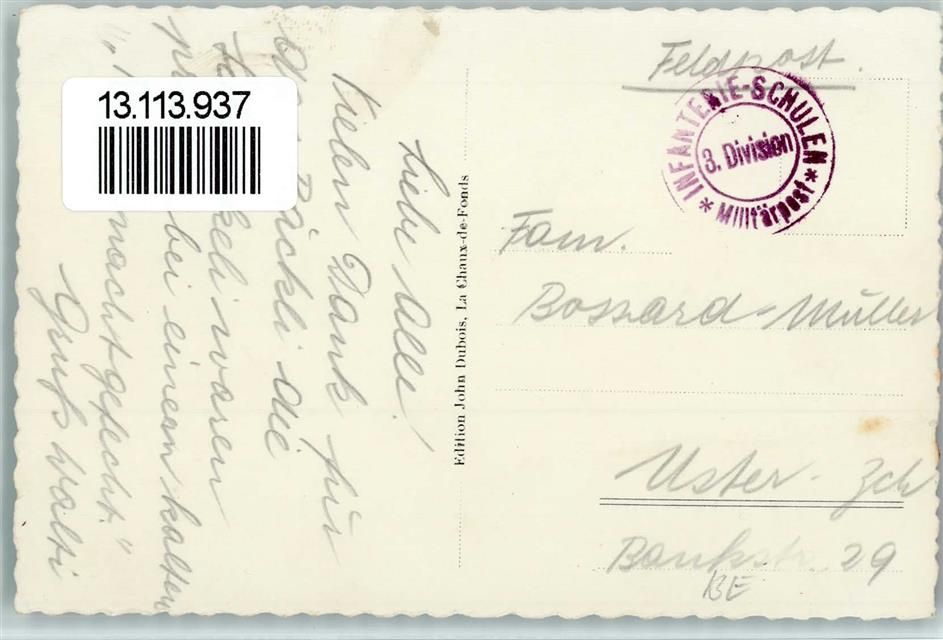 13.113.937
Liebe Alle!
Vielen Dank für
Päckli die
waren
bei einem kalten
Gruss Walti
Edition John Dubois, La Chaux-de-Fonds
Feldpost.
INFANTERIE-SCHULEN
3. Division
* Militärpost *
Fam.
Bossard-Müller
Uster - Zch
Bankstr. 29
BE